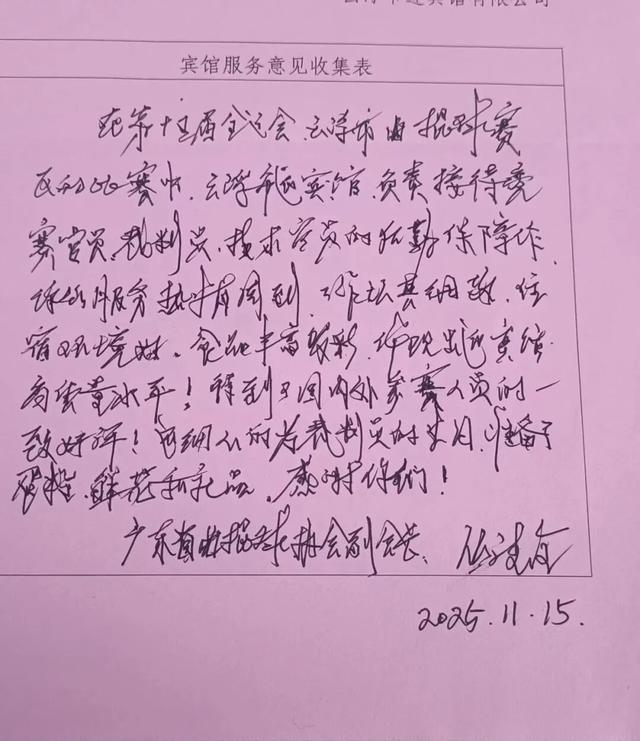 宾馆有限公司
宾馆服务意见收集表
在第十五届全运会云浮市曲棍球赛
区的比赛中,云浮迎宾馆,负责接待竞
赛官员、裁判员、技术官员的后勤保障工作,
你们服务热情周到,工作认真细致,住
宿环境好,食品丰富多彩,体现出迎宾馆
高质量水平!得到了国内外参赛人员的一
致好评!更细心的为裁判员的生日,准备了
蛋糕、鲜花和礼品,感谢你们!
广东省曲棍球协会副会长、
2025.11.15.